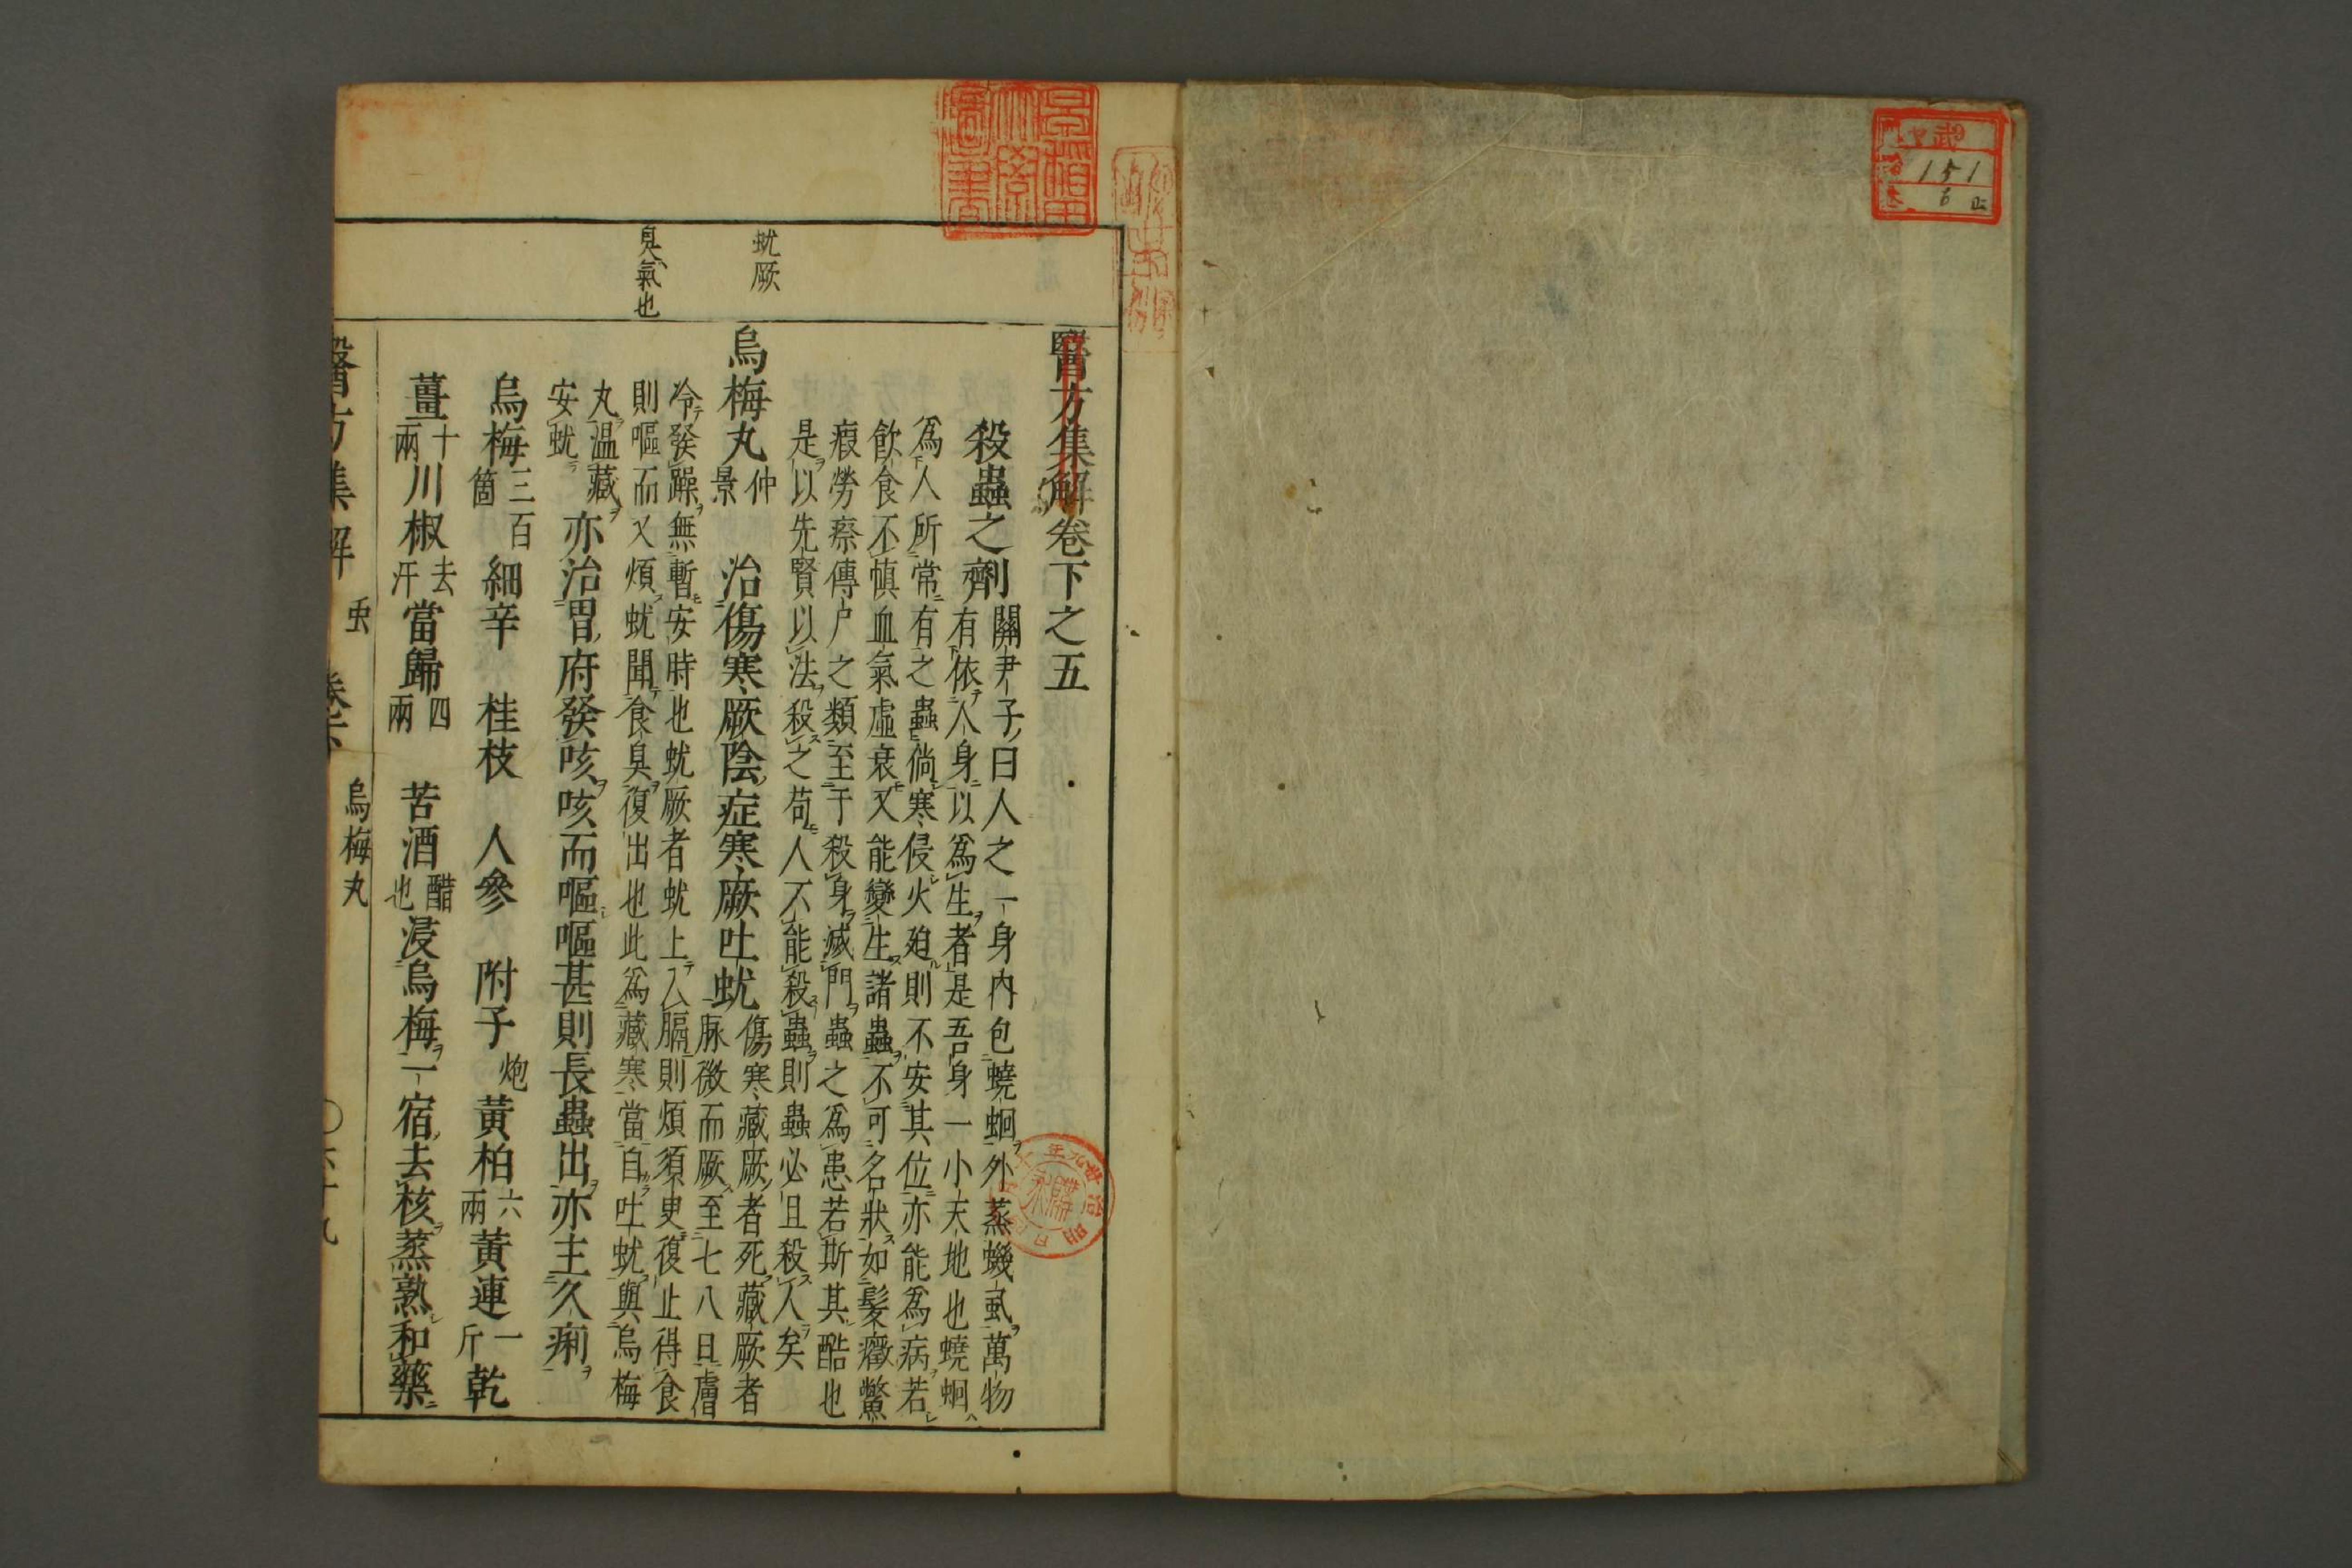 醫方集解卷下之五
殺蟲之劑
關尹子曰人之一身內包蟯蛔外蒸蟣虱萬物
有依人身以爲生者是吾身一小天地也蟯蛔
爲人所常有之蟲倘寒侵火廹則不安其位亦能爲病若
飲食不慎血氣虛衰又能變生諸蟲不可名狀如髮癥鱉
瘕勞瘵傳尸之類至于殺身滅門蟲之爲患若斯其酷也
是以先賢以法殺之苟人不能殺蟲則蟲必且殺人矣
烏梅丸仲景 治傷寒厥陰症寒厥吐蚘
傷寒藏厥者死藏厥者
脉微而厥至七八日膚
冷發躁無暫安時也蚘厥者蚘上入膈則煩須臾復止得食
則嘔而又煩蚘聞食臭復出也此爲藏寒當自吐蚘與烏梅
丸温藏
安蚘
亦治胃府發咳咳而嘔嘔甚則長蟲出亦主久痢
烏梅三百箇 細辛 桂枝 人參 附子炮 黃柏六兩 黃連一斤 乾
薑十兩 川椒去汗 當歸四兩 苦酒醋也 浸烏梅一宿去核蒸熟和藥
蚘厥
臭氣也
醫方集解 虫 卷下 烏梅丸
151
6